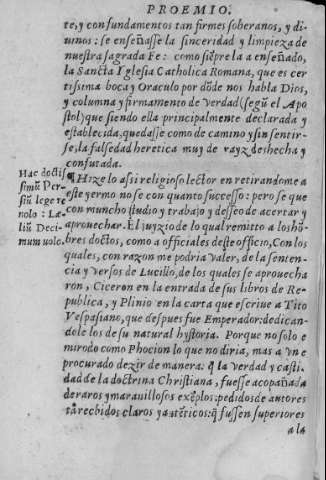 PROEMIO.
te, y con fundamentos tan firmes soberanos, y di-
uinos: se enseñasse la sinceridad y limpieza de
nuestra sagrada Fe: como siẽpre la a enseñado,
la Sancta Yglesia Catholica Romana, que es cer
tissima boca y Oraculo por dõde nos habla Dios,
y columna y firmamento de verdad (segũ el Apo
stol) que siendo ella principalmente declarada y
establecida, quedasse como de camino y sin sentir-
se, la falsedad heretica muy de rayz deshecha y
confutada.
Hac doctis
simũ Per-
siũ lege re
nolo: Læ-
liũ Deci-
mum uolo.
¶ Hize lo assi religioso lector en retirandome a
este yermo no se con quanto successo: pero se que
con muncho studio y trabajo y desseo de acertar y
aprouechar. El juyzio de lo qual remitto a los hõ-
bres doctos, como a officiales deste officio, Con los
quales, con razon me podria valer, de la senten-
cia y versos de Lucilio, de los quales se aprouecha
ron, Ciceron en la entrada de sus libros de Re-
publica, y Plinio en la carta que escriue a Tito
Vespasiano, que despues fue Emperador: dedican-
dole los de su natural hystoria. Porque no solo e
mirado como Phocion lo que no diria, mas a vn e
procurado dezir de manera: q̃ la verdad y casti-
dad de la doctrina Christiana, fuesse acopañada
de raros y marauillosos exẽplos: pedidos de autores
tã recbidos claros y autẽticos: q̃ fussen superiores
a la